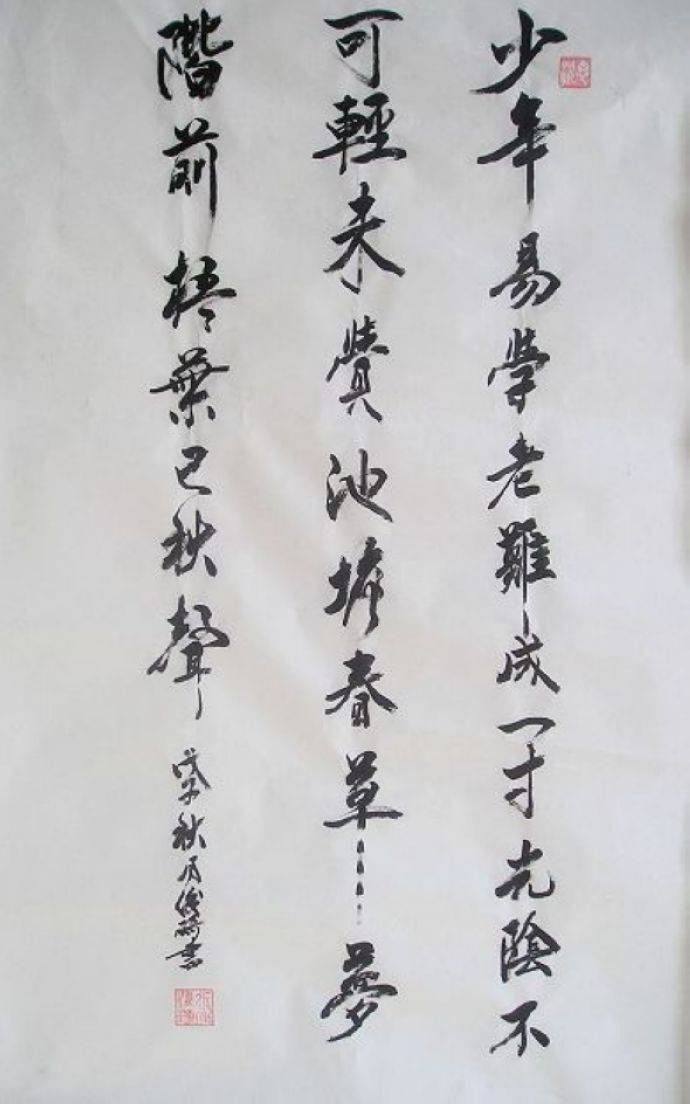 少年易學老難成一寸光陰不
可輕未覺池塘春草夢
階前梧葉已秋聲
戊子秋月 書